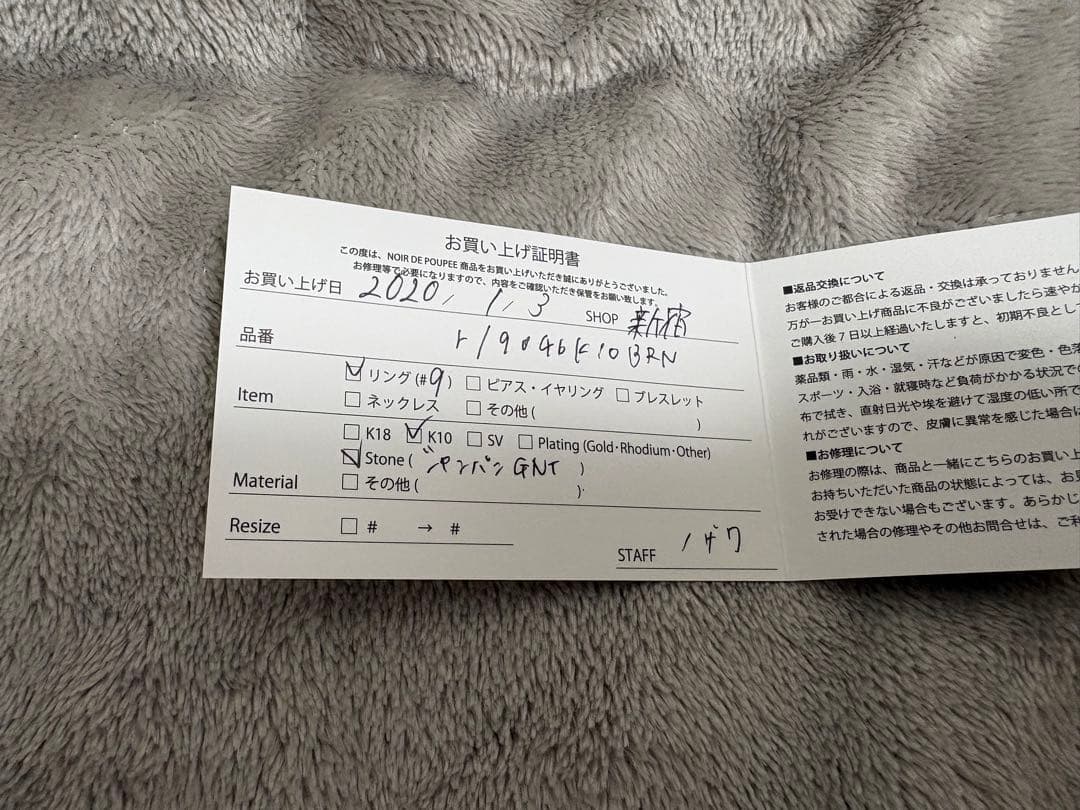 お買い上げ証明書
この度は、NOIR DE POUPEE 商品をお買い上げいただき誠にありがとうございました。
お修理等で必要になりますので、内容をご確認いただき保管をお願い致します。
お買い上げ日 2020, 1, 3 SHOP 新宿
品番 r19046K10BRN
Item
☑ リング(#9) □ ピアス・イヤリング □ ブレスレット
□ ネックレス □ その他( )
Material
□ K18 ☑ K10 □ SV □ Plating (Gold・Rhodium・Other)
☑ Stone ( シャンパンGNT )
□ その他( )
Resize □ # → #
STAFF
■返品交換について
お客様のご都合による返品・交換は承っておりません
万が一お買い上げ商品に不良がございましたら速やか
ご購入後7日以上経過いたしますと、初期不良とし
■お取り扱いについて
薬品類・雨・水・湿気・汗などが原因で変色・色落
スポーツ・入浴・就寝時など負荷がかかる状況での
布で拭き、直射日光や埃を避けて湿度の低い所で
れがございますので、皮膚に異常を感じた場合に
■お修理について
お修理の際は、商品と一緒にこちらのお買い上
お持ちいただいた商品の状態によっては、お見
お受けできない場合もございます。あらかじ
された場合の修理やその他お問合せは、ご利